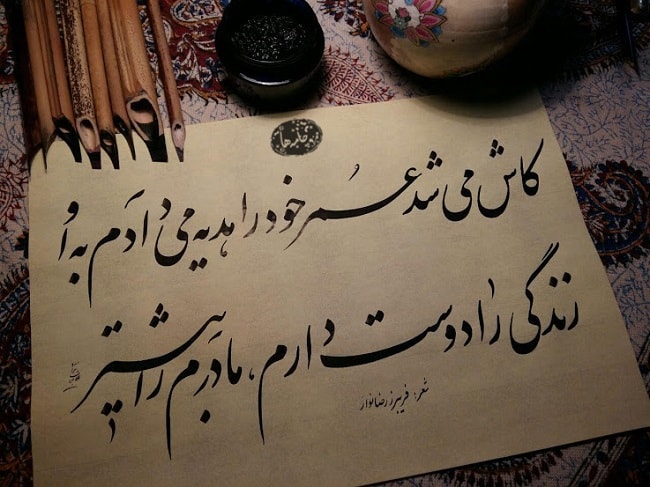 کاش می شد عُمر خود را هدیه می دادَم به اُو
زندگی را دوست دارم، مادرَم را بیشتر
شعر: فریبرز رضانواز